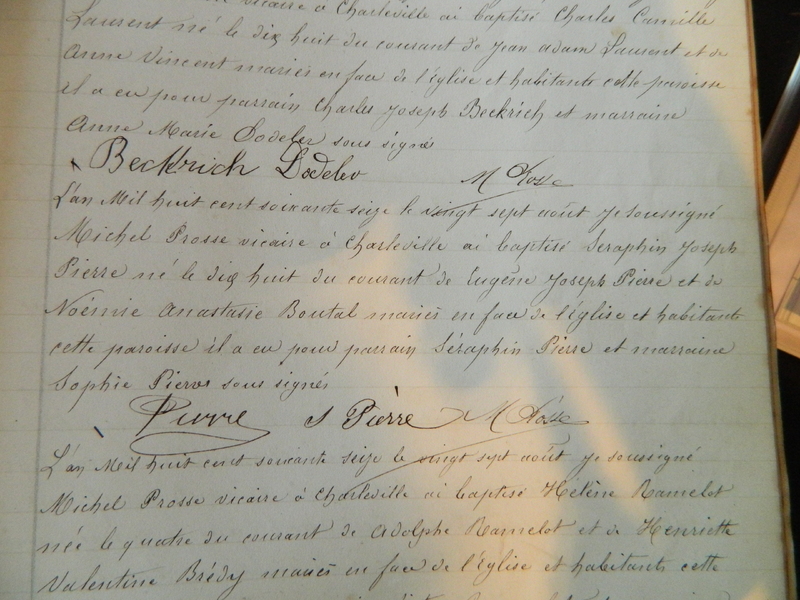 vicaire à Charleville ai baptisé Charles Camille
Laurent né le dix huit du courant de Jean adam Laurent et de
Anne Vincent mariés en face de l'église et habitants cette paroisse
il a eu pour parrain Charles Joseph Beckrich et marraine
Anne Marie Lodeler sous signés
Beckrich Lodeler M Prosse
L'an Mil huit cent soixante seize le vingt sept août je soussigné
Michel Prosse vicaire à Charleville ai baptisé Seraphin Joseph
Pierre né le dix huit du courant de Eugène Joseph Pierre et de
Noémie Anastasie Boutal mariés en face de l'église et habitants
cette paroisse il a eu pour parrain Séraphin Pierre et marraine
Sophie Pierre sous signés
Pierre S Pierre M Prosse
L'an Mil huit cent soixante seize le vingt sept août je soussigné
Michel Prosse vicaire à Charleville ai baptisé Hélène Ramelot
née le quatre du courant de Adolphe Ramelot et de Henriette
Valentine Brédy mariés en face de l'église et habitants cette